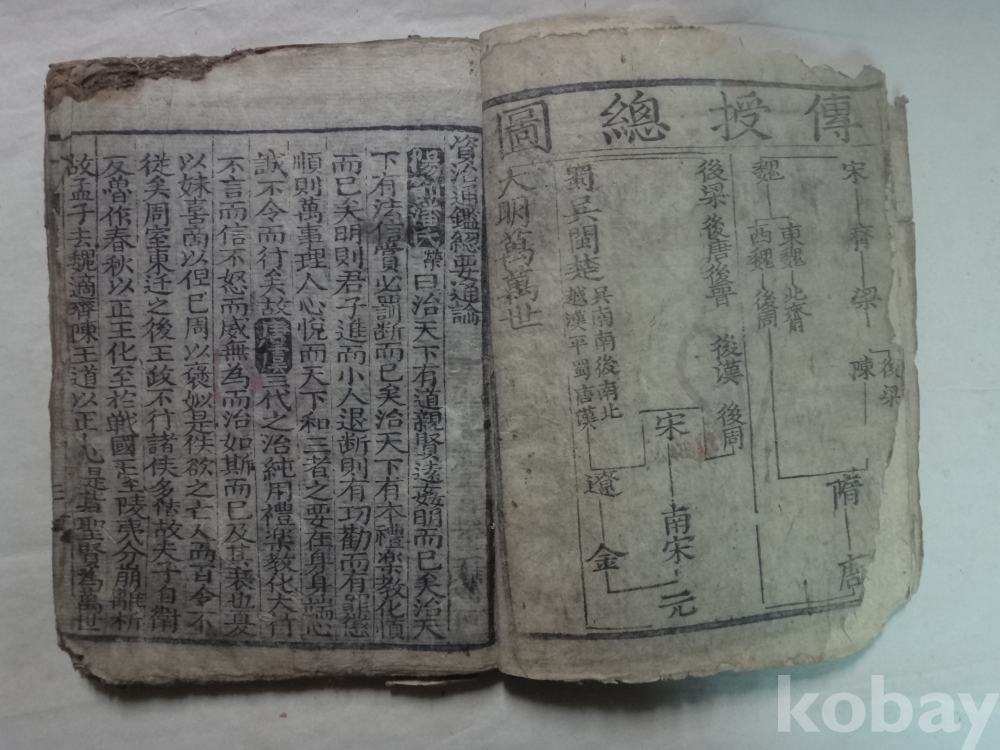 傳授總圖
宋 齊 梁 陳 隋 唐
後梁
魏
東魏 北齊
西魏 後周
後梁 後唐 後晉 後漢 後周
宋 南宋 元
遼 金
蜀吳閩楚
吳南南後南北
越漢平蜀唐漢
大明萬萬世
資治通鑑總要通論
陽節潘氏榮曰治天下有道親賢遠姦明而已矣治天
下有法信賞必罰断而已矣治天下有本禮樂教化順
而已矣明則君子進而小人退断則有功勸而有罪懲
順則萬事理人心悅而天下和三者之要在身身端心
誠不令而行矣故唐虞三代之治純用禮樂教化大行
不言而信不怒而威無為而治如斯而已及其衰也夏
以妹喜商以妲己周以褒姒是徇欲之亡人而百令不
從矣周室東迁之後王政不行諸侯多僭故夫子自衛
反魯作春秋以正王化至於戦國王陵夷分崩離析
故孟子去魏適齊陳王道以正人心是皆聖賢為萬世
kobay